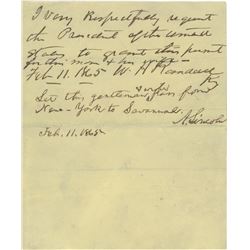 I very respectfully request
the President of the United
States to grant this permit
for this man & his wife -
Feb 11. 1865 W. H. 
Let this gentleman & wife pass from
New-York to Savannah.
A. Lincoln
Feb. 11. 1865